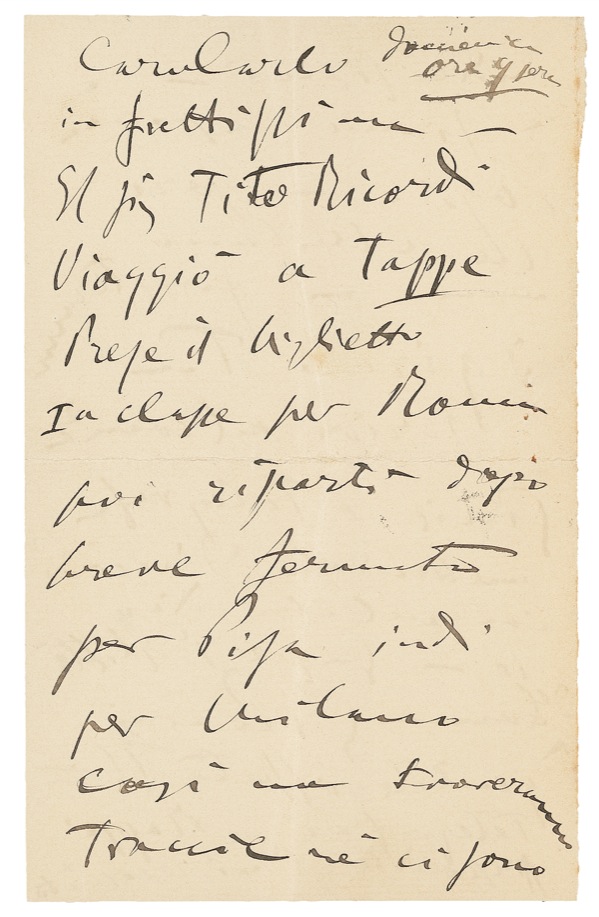 Caro Carlo
domenica
ore 9 sera
in frettissima —
El sig Tito Ricordi
Viaggiò a Tappe
Prese il biglietto
Ia classe per Roma
poi ripartì dopo
breve fermata
per Pisa indi
per Milano
così non troveranno
Traccie nè ci sono